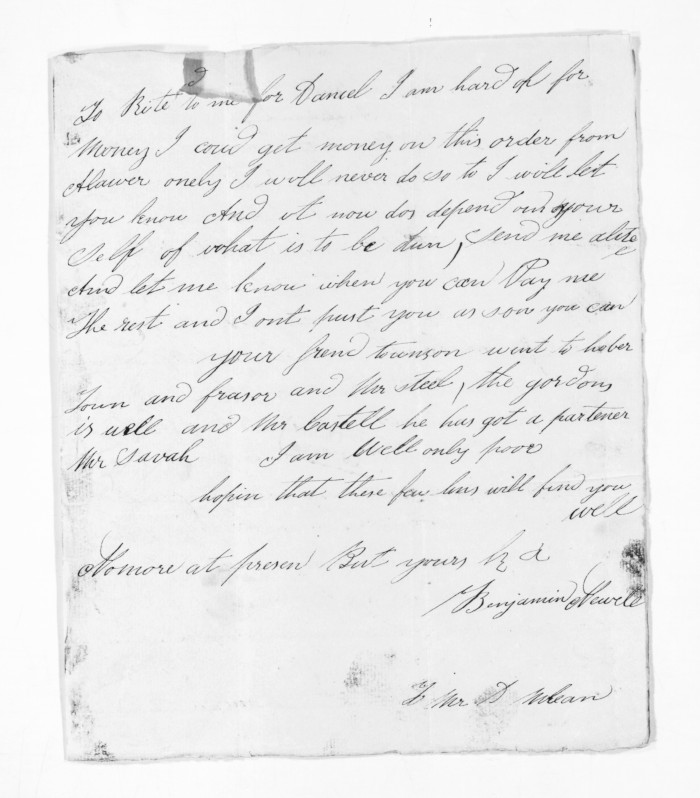 To Rite to me for Daniel I am hard of for
Money I coud get money on this order from
Alawer onely I woll never do so to I will let
you know And it now dos depend ond your
self of what is to be dun, send me
And let me know when you can Pay me
The rest and I ont pust you as son you can
your frend townson went to hober
Town and frasor and Mr steel, the gordons
is well and Mr Castell he has got a partener
Mr Savah I am Well only poor
hopin that these few lins will find you
well
Nomore at presen But yours &
Benjamin Newell
To Mr D Mclean